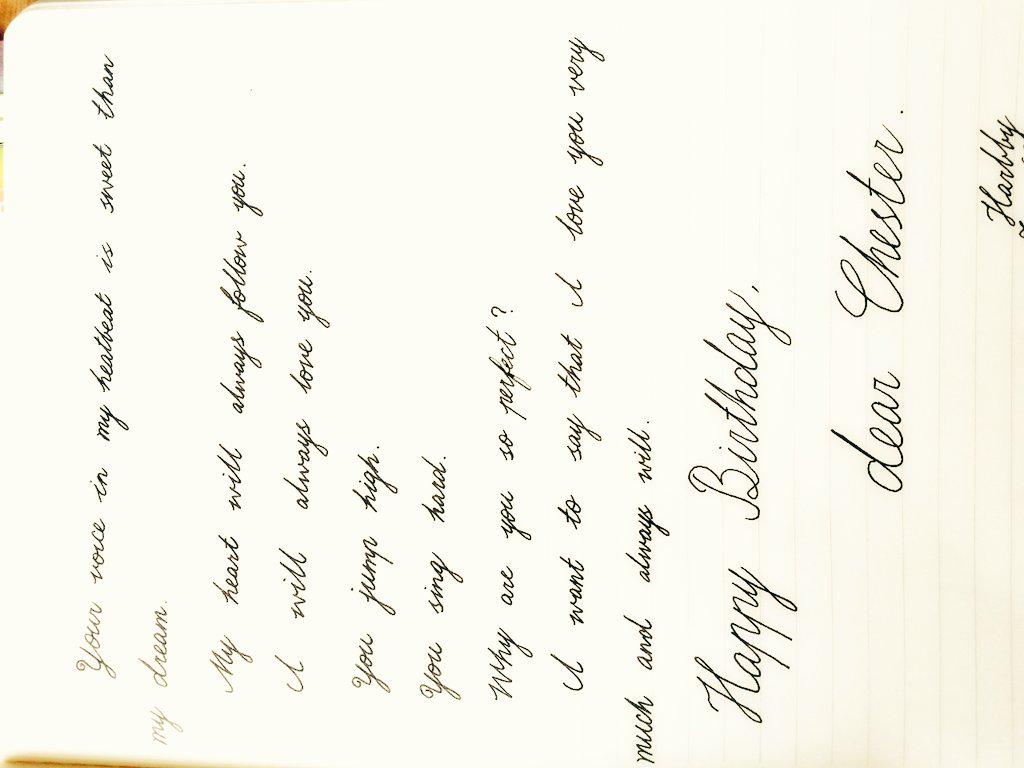 Your voice in my heatbeat is sweet than
my dream.
My heart will always follow you.
I will always love you.
You jump high.
You sing hard.
Why are you so perfect?
I want to say that I love you very
much and always will.
Happy Birthday,
dear Chester.
Harbby